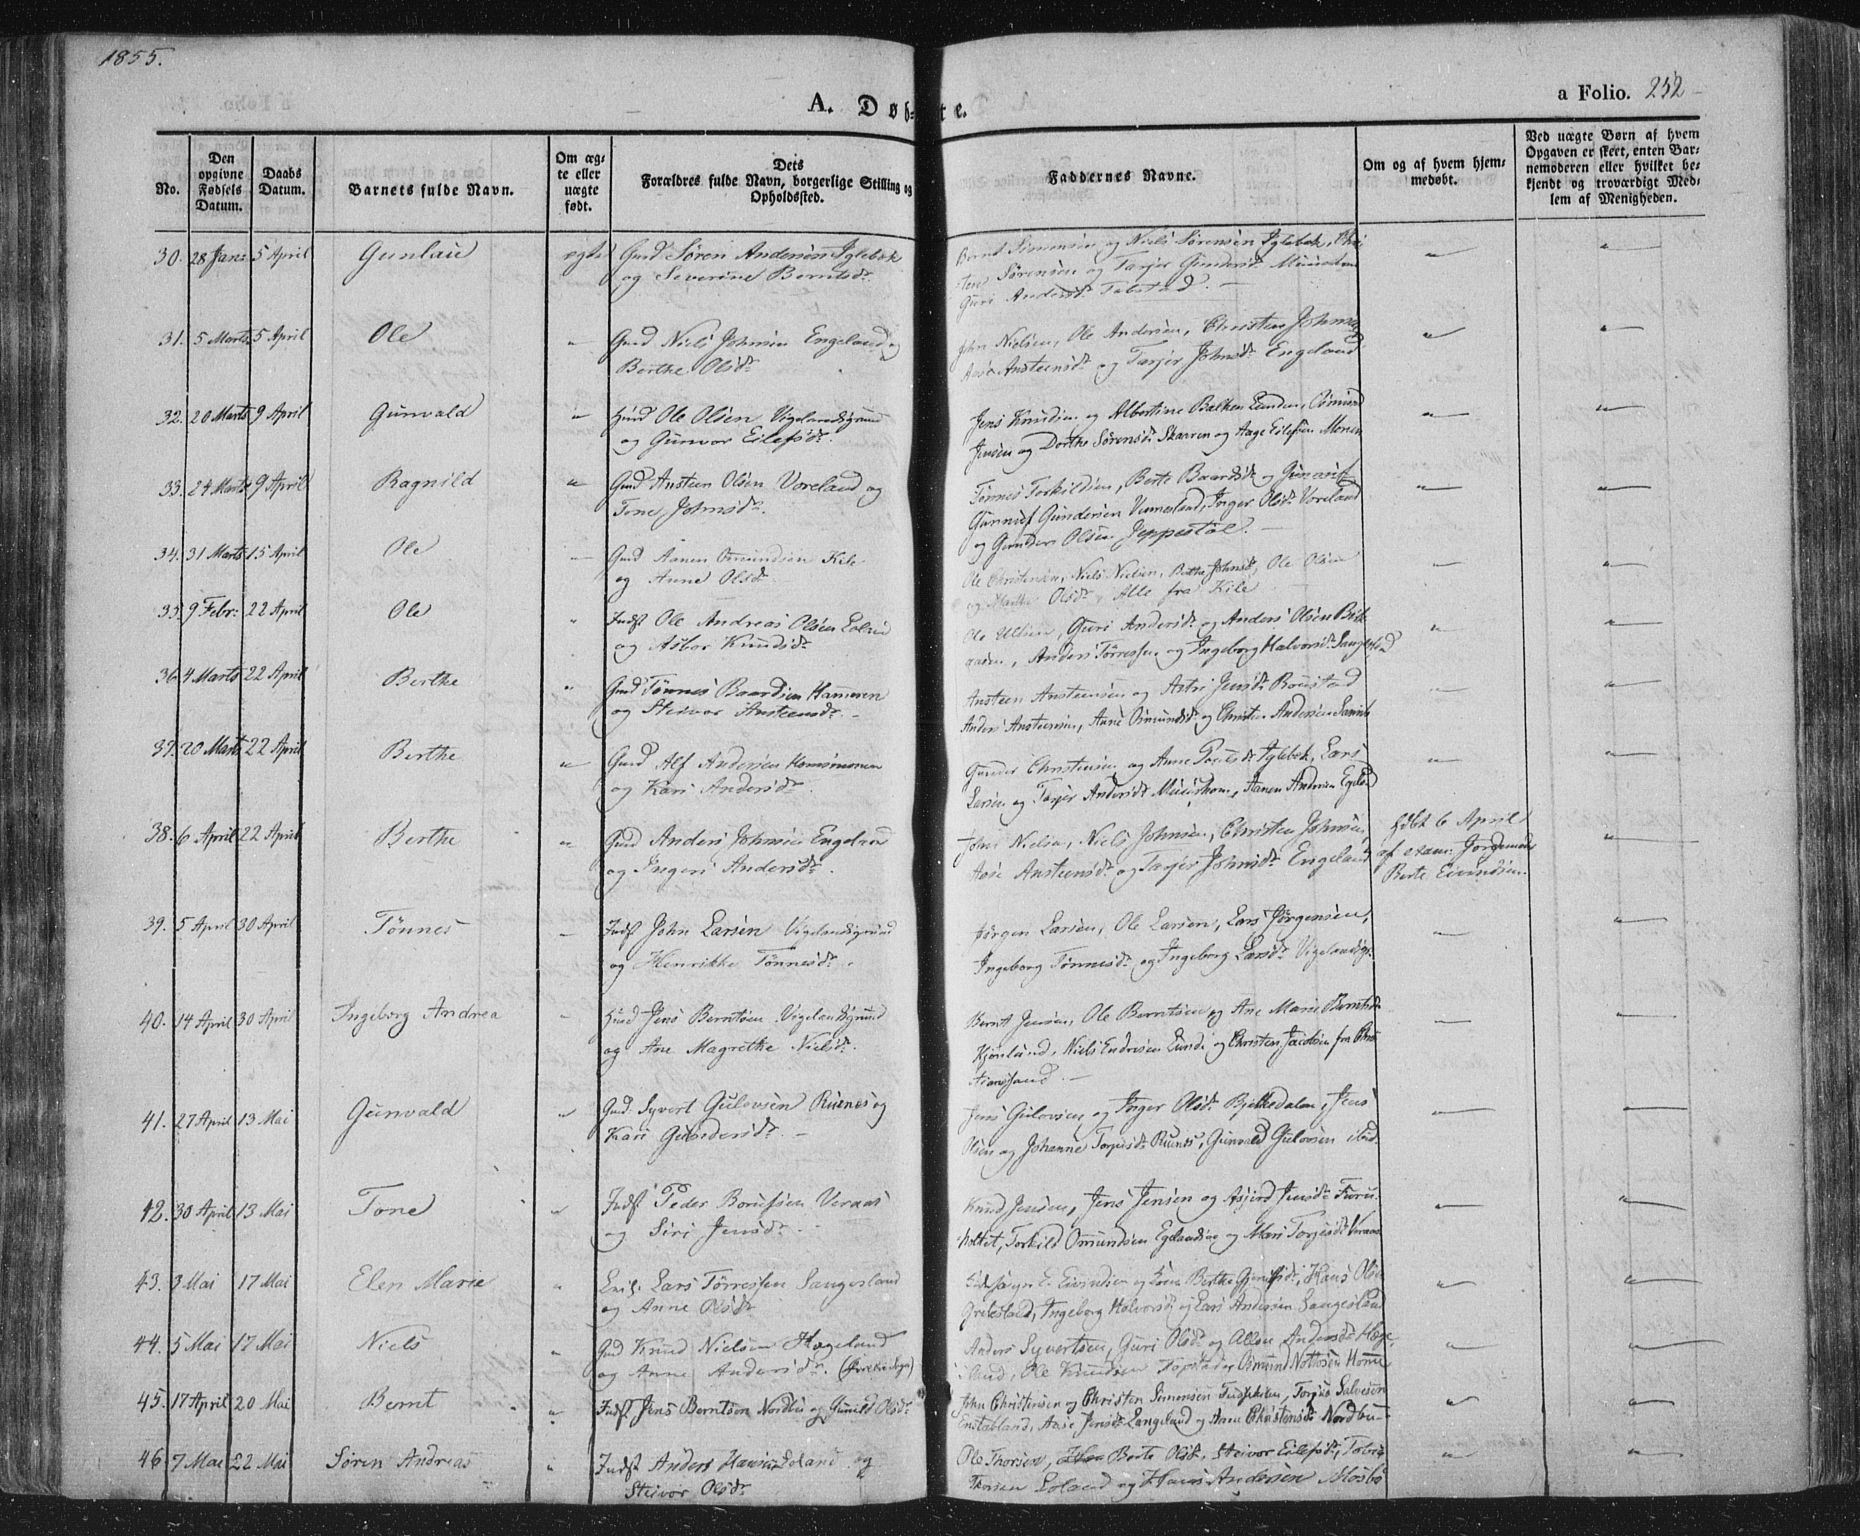 1855.
a Folio. 252
A. Døb-te.
No.
Den opgivne Fødsels Datum.
Daabs Datum.
Barnets fulde Navn.
Om ægte eller uægte født.
Dets Forældres fulde Navn, borgerlige Stilling og Opholdssted.
Faddernes Navne.
Om og af hvem hjemmedøbt.
Ved uægte Børn af hvem Opgaven er skeet, enten Barnemoderen eller hvilket bekjendt og troværdigt Medlem af Menigheden.
30. 28 Jan: 5 April Gunlau egte Gmd Søren Andersen Iglebæk
og Severine Berntsdr.
Bernt Simonsen og Niels Sørensen Iglebæk, Chri
sten Sørensen og Tarjer Gundersdr
Guri Andersdr
31. 5 Marts 5 April Ole " Gmd Niels Johnsen Engeland og
Berthe Olsdr
John Nielsen, Ole Andersen, Christen Johnsen
Aase Austeensdr og Tarjer Johnsdr Engeland
32. 20 Marts 9 April Gunvald " Huusmd Ole Olsen Vigelandsgrund
og Gunvor Eilefsdr.
Jens Knudsen og Albertine Balken Lunden,
Jensen og Dorthe Sørensdr Skarren og Aage Eilefsen Moren
33. 24 Marts 9 April Ragnild " Gmd Austeen Olsen Voreland og
Tone Johnsdr.
Tønnes Torkildsen, Berte Baardsdr og
Gunnuf Gundersen Vennesland, Inger Olsdr Voreland
og Gunder Olsen Jeppestøl.
34. 31 Marts 15 April Ole Gmd Aanen Omundsen Kile
og Anne Olsdr
Ole Christensen, Niels Nielsen, Berthe Johnsdr, Ole Olsen
og Marthe Olsdr, Alle fra Kile
35. 9 Febr: 22 April Ole " Indst Ole Andreas Olsen
og Asbor Knudsdr
Guri Andersdr og Anders Olsen
Anders Tørresen og Ingeborg Halvorsdr Sangesland
36. 4 Marts 22 April Berthe " Gmd Tønnes Baardsen Hammen
og Steivor Austeensdr.
Austeen Austeensen og Astri Jensdr Roustad
Anders Austeensen, Aane Omundsdr og Christen Andersen
37. 20 Marts 22 April Berthe " Gmd Alf Andersen Homsmoen
og Kari Andersdr.
Gunder Christensen og Anne Iglebæk, Lars
Larsen og Tarjer Andersdr Aanen Andersen
38. 6 April 22 April Berthe " Gmd Anders Johnsen Engeland
og Ingeri Andersdr.
John Nielsen, Niels Johnsen, Christen Johnsen,
Aase Austeensdr og Tarjer Johnsdr Engeland
Hdbt 6 April
af exam: Jordemoder
Berte Eivindsen.
39. 5 April 30 April Tønnes Indst John Larsen Vigelandsgrund
og Henrikke Tønnesdr.
Jørgen Larsen, Ole Larsen, Lars Jørgensen,
Ingeborg Tønnesdr og Ingeborg Larsdr Vigelandsgr.
40. 14 April 30 April Ingeborg Andrea Huusmd Jens Berntsen Vigelandsgrund
og Ane Magrethe Nielsdr.
Bernt Jensen, Ole Berntsen og Ane Marie Berntsdr
Niels Endresen Lunde og Christen Jacobsen fra Chri
stianssand.
41. 27 April 13 Mai Gunvald " Gmd. Syvert Gulovsen Ruenes og
Kari Gundersdr.
Jens Gulovsen og Inger Olsdr Bjelkedalen, Jens
Olsen og Johanne Torjusdr Ruenes, Gunvald Gulovsen ibid.
42. 30 April 13 Mai Tone " Indst Peder Borufsen Veraas
og Siri Jensdr.
Knud Jensen, Jens Jensen og Asjerd Jensdr Furu-
holtet, Torkild Omundsen og Mari Torjusdr Veraas
43. 3 Mai 17 Mai Elen Marie " Lars Tørresen Sangesland
og Anne Olsdr
E. Eivindsen og Kone Berthe Hans Olsen
Ingeborg Halvorsdr og Lars Andersen Sangesland
44. 5 Mai 17 Mai Niels " Gmd Knud Nielsen Hægeland
og Anne Andersdr.
Anders Syvertsen, Guri Olsdr og Andersdr Hæge
land, Ole Knudsen Omund Homme
45. 17 April 20 Mai Bernt " Indst Jens Berntsen Nordbu og Gunild Olsdr
John Christensen og Christen Simonsen Torjus Salvesen
Aase Jensdr Langeland og Christensdr Nordbu
46. 7 Mai 22 Mai Søren Andreas " Indst Anders Hansen Loland og
Steivor Olsdr
Ole Thorsen, Berte Olsdr, Steivor Eilefsdr,
Thorsen Loland og Hans Andersen Mosbø